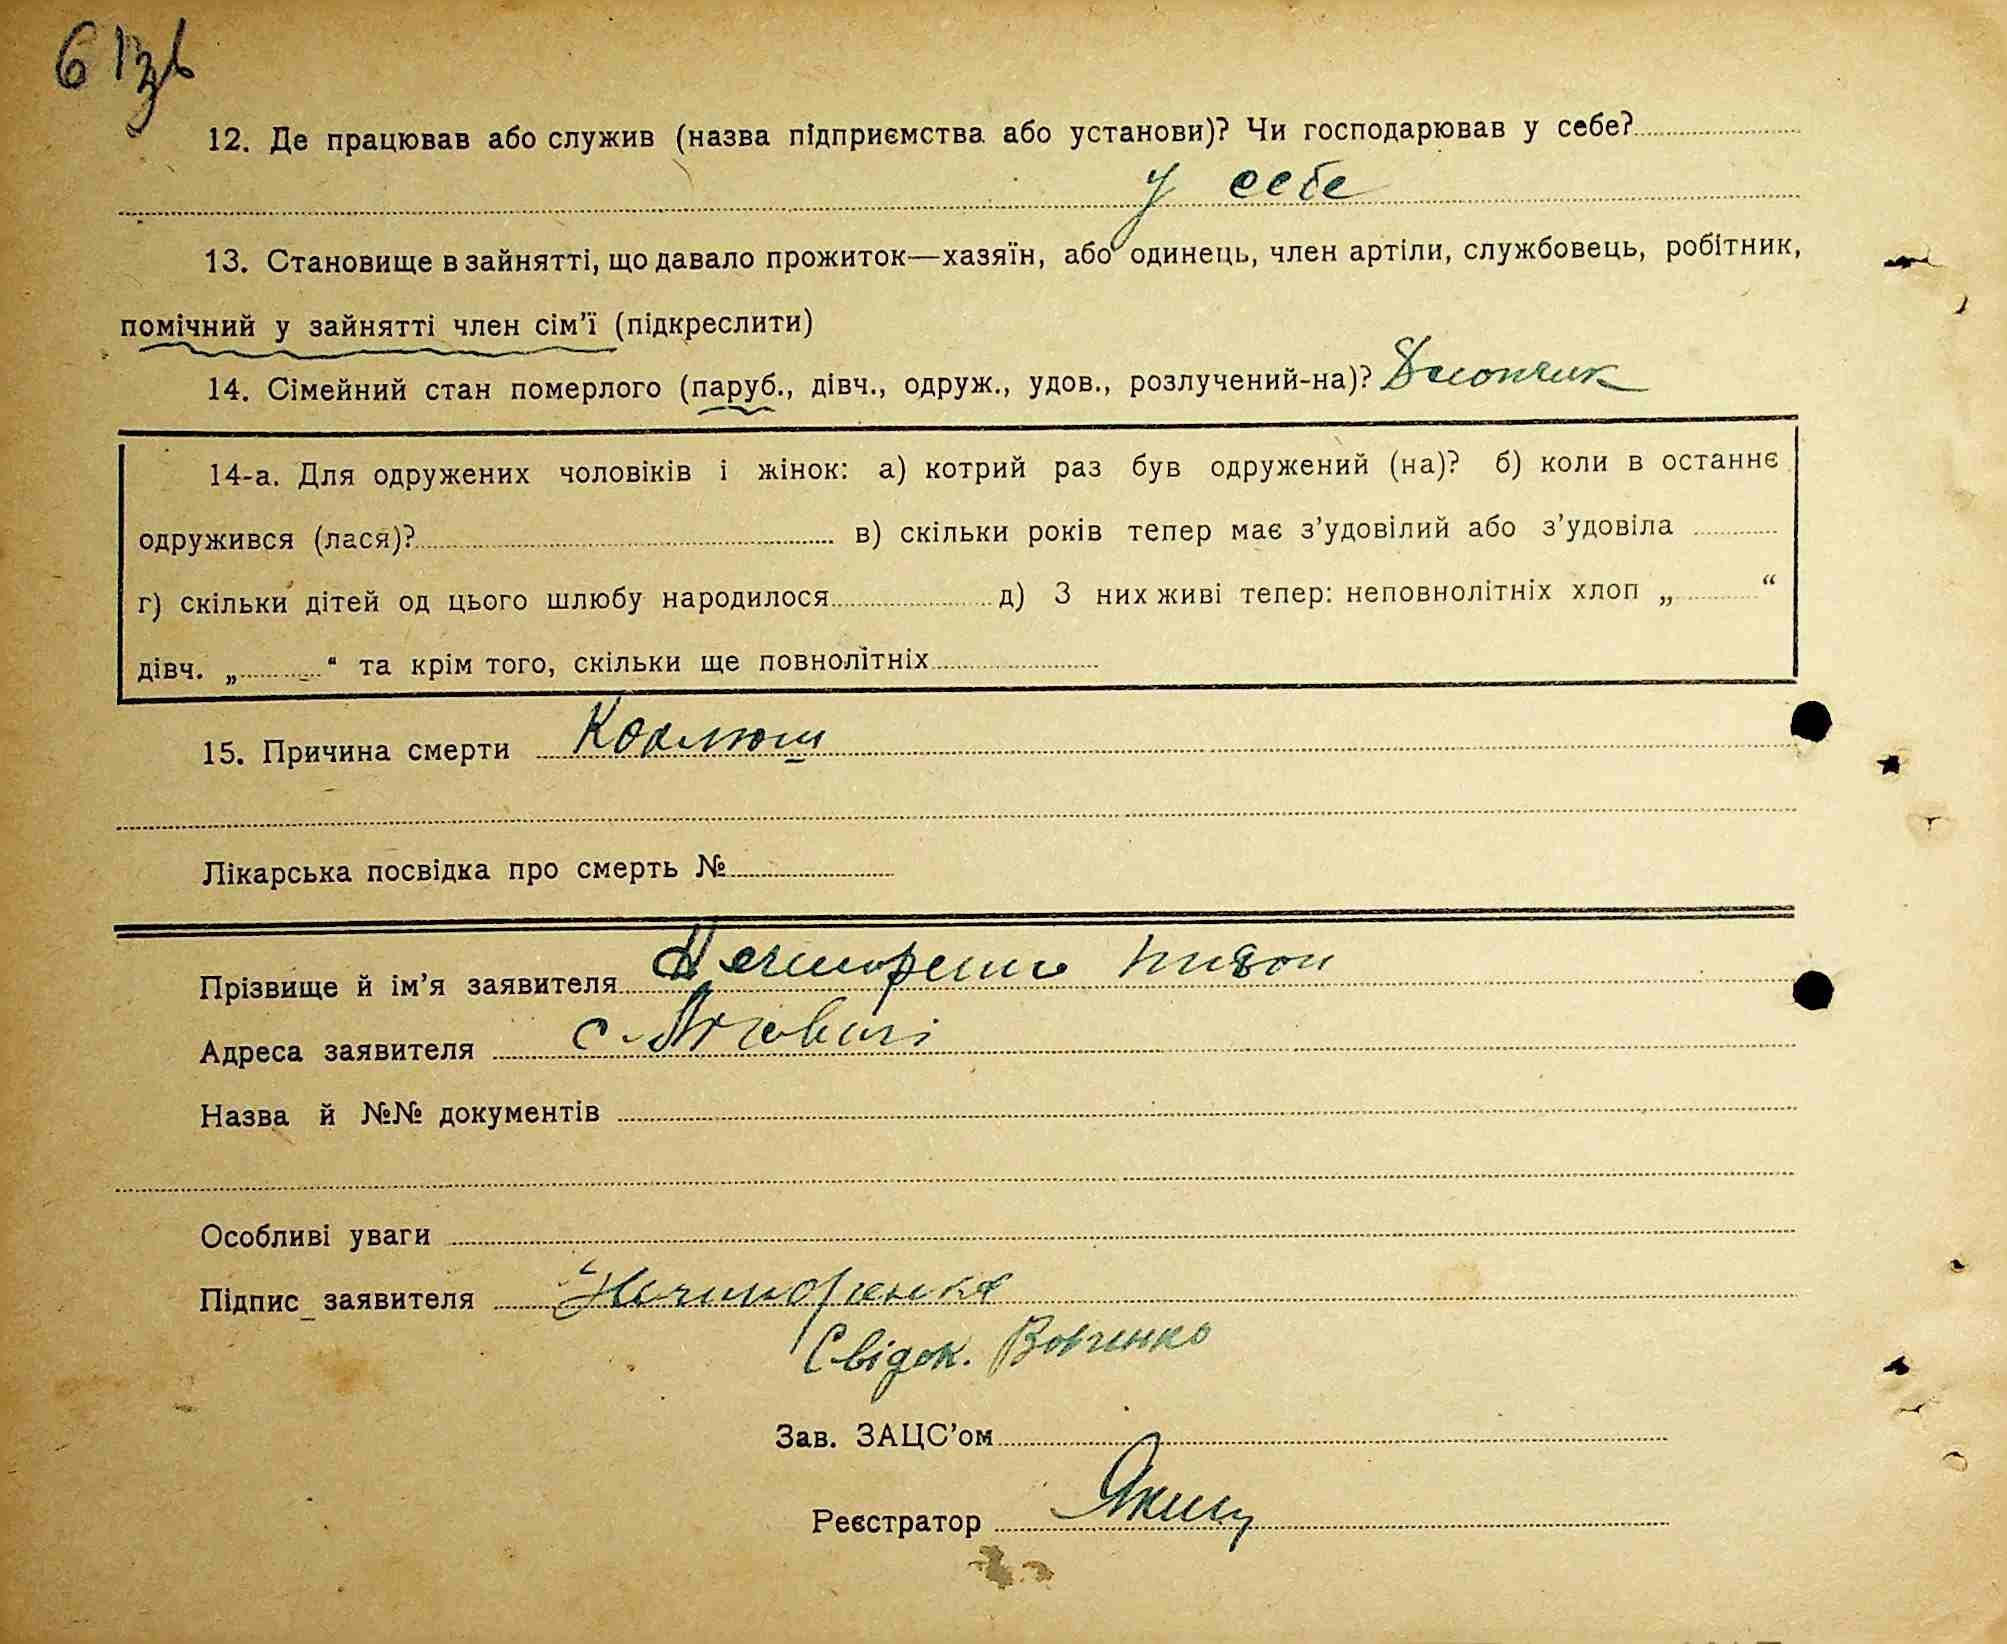 613в
12. Де працював або служив (назва підприємства або установи)? Чи господарював у себе?
у себе
13. Становище в зайнятті, що давало прожиток—хазяїн, або одинець, член артіли, службовець, робітник,
помічний у зайнятті член сім’ї (підкреслити)
14. Сімейний стан померлого (паруб., дівч., одруж., удов., розлучений-на)?
14-а. Для одружених чоловіків і жінок: а) котрий раз був одружений (на)? б) коли в останнє
одружився (лася)? в) скільки років тепер має з’удовілий або з’удовіла
г) скільки дітей од цього шлюбу народилося д) З них живі тепер: неповнолітніх хлоп „ “
дівч. „ “ та крім того, скільки ще повнолітніх
15. Причина смерти Коклюш
Лікарська посвідка про смерть №
Прізвище й ім’я заявителя
Адреса заявителя с.
Назва й №№ документів
Особливі уваги
Підпис заявителя Нечипоренко
Свідок. Вовченко
Зав. ЗАЦС’ом
Реєстратор